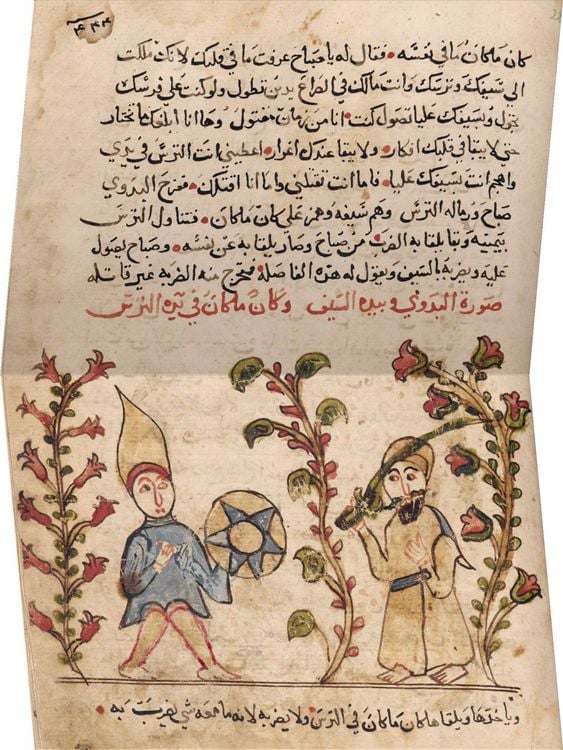 ٤٤٤
كان ما كان ما في نفسه • فقال له يا صباح عرفت ما في قلبك لانك ملكت
الى سيفك وترسك وانت مالك في الصراع يدين تطول ولو كنت على فرسك
تجول وبسيفك عليا تصول كنت • انا من زمان مقتول • وها انا ابلغك ما تختار
حتى لا يبقا في قلبك افكار • ولا يبقا عندك اغرار • اعطيني انت الترس في يدي
واهجم انت بسيفك عليا • فاما انت تقتلني واما انا اقتلك • ففرح البدوي
صباح ورماله الترس وهم شيفه وهمز على كان ماكان • فتناول الترس
بيمينه وبقا يلقا به الضرب من صباح وصار يلقا به عن نفسه • وصباح يصول
عليه ويضربه بالسيف ويقول له هذه الفاصلة فتخرج منه الضربه غير قاتله
صورة البدوي وبيده السيف وكان ماكان في يده الترس
وياخدها ويلقاها كان ماكان في الترس • ولا يضربه لانه ما معه شي يضرب به •